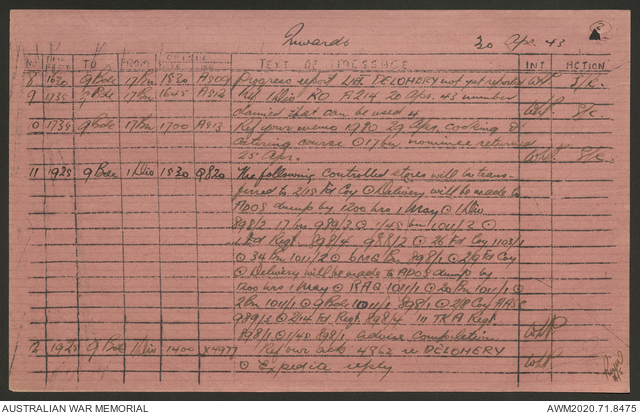 Inwards 30 Apr. 43
NO TO FROM TEXT OF MESSAGE INT. ACTION
8 1630 9 Bde 17 Bn 1530 A809 Progress report Lt. DELOHERY not yet
9 1735 9 Bde 17 Bn 1645 A812 Ref 1 Div RO R214 20 Apr. 43 number
claimed that can be used 4
10 1735 9 Bde 17 Bn 1700 A813 Ref your memo 1980 29 Apr. Cooking &
catering course 17 Bn. nominee returned
25 Apr.
11 1925 9 Bde 1 Div 1530 Q820 The following controlled stores will be trans-
ferred to 2/15 Fd Coy Delivery will be made to
ADOS dump by 1200 hrs 1 May 1 Div
898/2 17 Bn 989/3 1/45 Bn 1011/2
Fd Regt 898/4 988/2 26 Fd Coy 1103/1
34 Bn 1011/2 6 MG Bn 898/1 29 Fd Coy
Delivery will be made to ADOS dump by
1200 hrs 1 May RAE 1011/1 20 Bn 1011/1
2 Bn 1011/1 9 Bde 1011/1 898/1 Coy AASC
989/3 Fd Regt 898/4 Regt
898/1 1/45 898/1 advise completion
1925 9 Bde 1 Div 1400 X4977 Ref our 4862 re DELOHERY
Expedite reply
AUSTRALIAN WAR MEMORIAL
AWM2020.71.8475